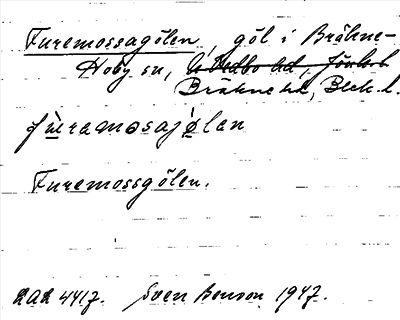 Furemossagölen, göl i Bräkne-
Hoby sn, N. Vedbo hd, Jönk. l.
Bräkne hd, Blek. l.
fùramosajølan
Furemossgölen.
LAL 4417. Sven Benson 1947.